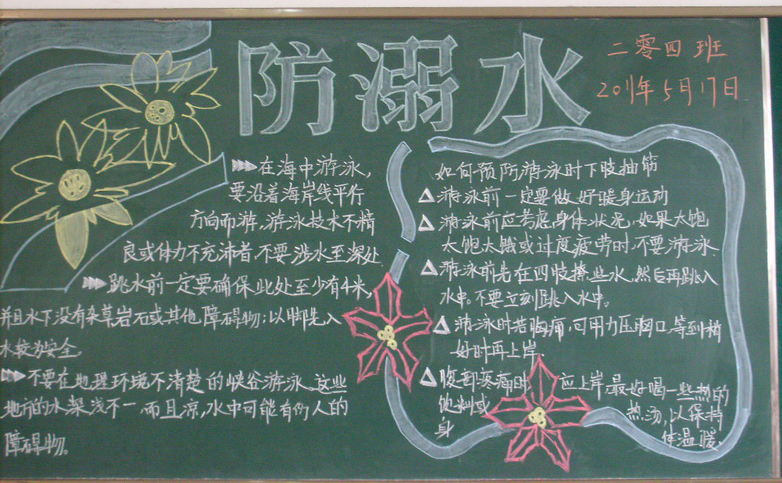 防溺水
二零四班
201年5月17日
在海中游泳，
要沿着海岸线平行
方向而游，游泳技术不精
良或体力不充沛者，不要涉水至深处
跳水前一定要确保此处至少有4米，
并且水下没有杂草岩石或其他障碍物；以脚先入
水较为安全。
不要在地理环境不清楚的峡谷游泳，这些
地方的水深浅不一，而且凉，水中可能有伤人的
障碍物。
如何预防游泳时下肢抽筋
△游泳前一定要做好暖身运动
△游泳前应考虑身体状况，如果太饱
太饱太饿或过度疲劳时，不要游泳
△游泳前先在四肢撩些水，然后再跳入
水中。不要立刻跳入水中。
△游泳时若胸痛，可用力压胸口，等到稍
好时再上岸。
△腹部疼痛时 应上岸，最好喝一些热的
饮料或 热汤，以保持
身 体温暖。